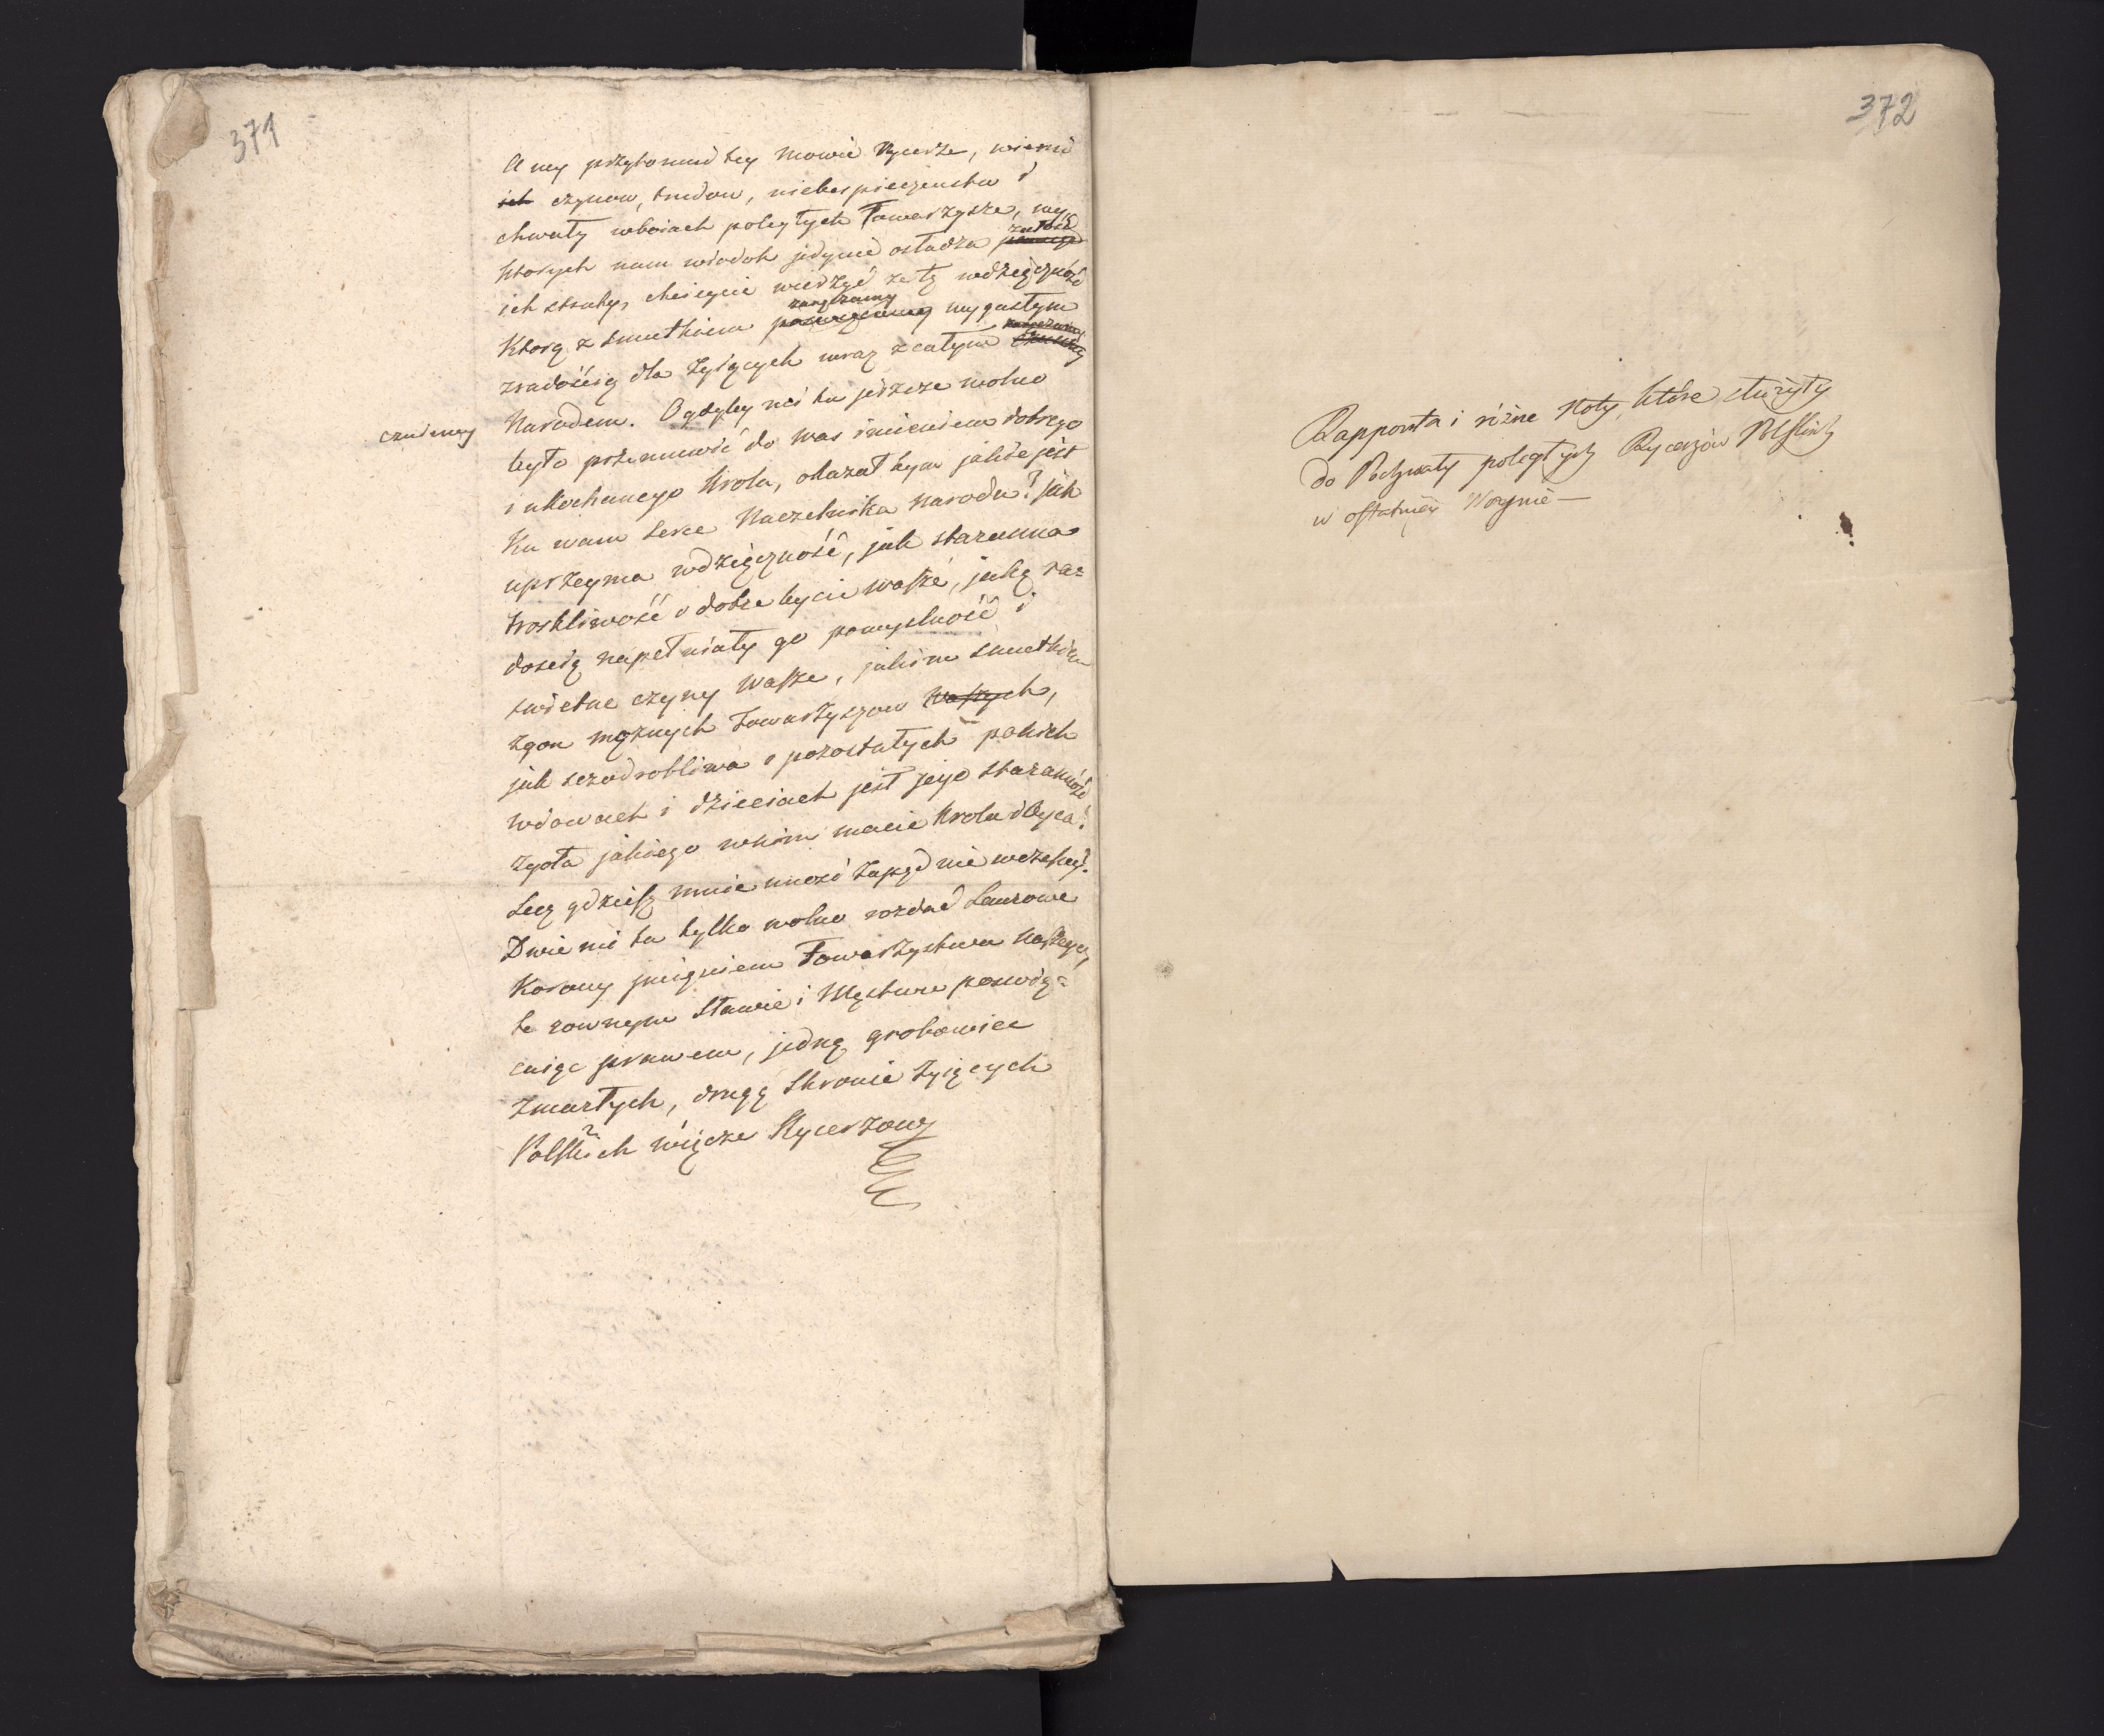 371
A wy przytomni tey mowie Rycerze, wierni
ich czynow, trudow, niebespieczenstw i
chwały wboiach poległych Towarzysze, wy
żałość
ktorych nam widok jedynie osładza
ich straty, chcieycie wierzyć że tę wdzięczność
Ktorą z smutkiem my gasłym
zradością dla żyiących wraz z całym
czuiemy
Narodem. O gdyby mi tu jeszcze wolno
było przemowić do was imieniem dobrego
i ukochanego Krola, okazał bym jakie jest
Ku wam serce Naczelnika Narodu? jak
uprzeyma wdzięczność, jak staranna
troskliwość o dobre bycie wasze, jaką ra=
doscią napełniały go pomyslność i
swietne czyny wasze, jakim smutkiem
zgon mężnych Towarzyszow waszych,
jak szczodrobliwa o pozostałych po nich
wdowach i dzieciach jest jego staranność
zgoła jakiego wnim macie Krola i Oyca?
Lecz gdzieSz mnie unosi zapęd nie wczesny?
Dwie mi tu tylko wolno rozdać Laurowe
Korony imieniem Towarzystwa naszego,
te rownym Sławie i Męstwu poswię=
caiąc prawem, jedną grobowiec
zmarłych, drugą Skronie żyiących
Polskich więcze Rycerzow
372
Rapporta i różne Noty, które służyły
do Pochwały poległych Rycerzów Polskich
w ostatniey Woynie —